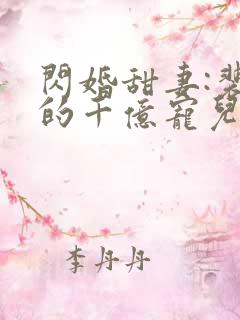 閃婚甜妻:
的千億寵兒
李丹丹